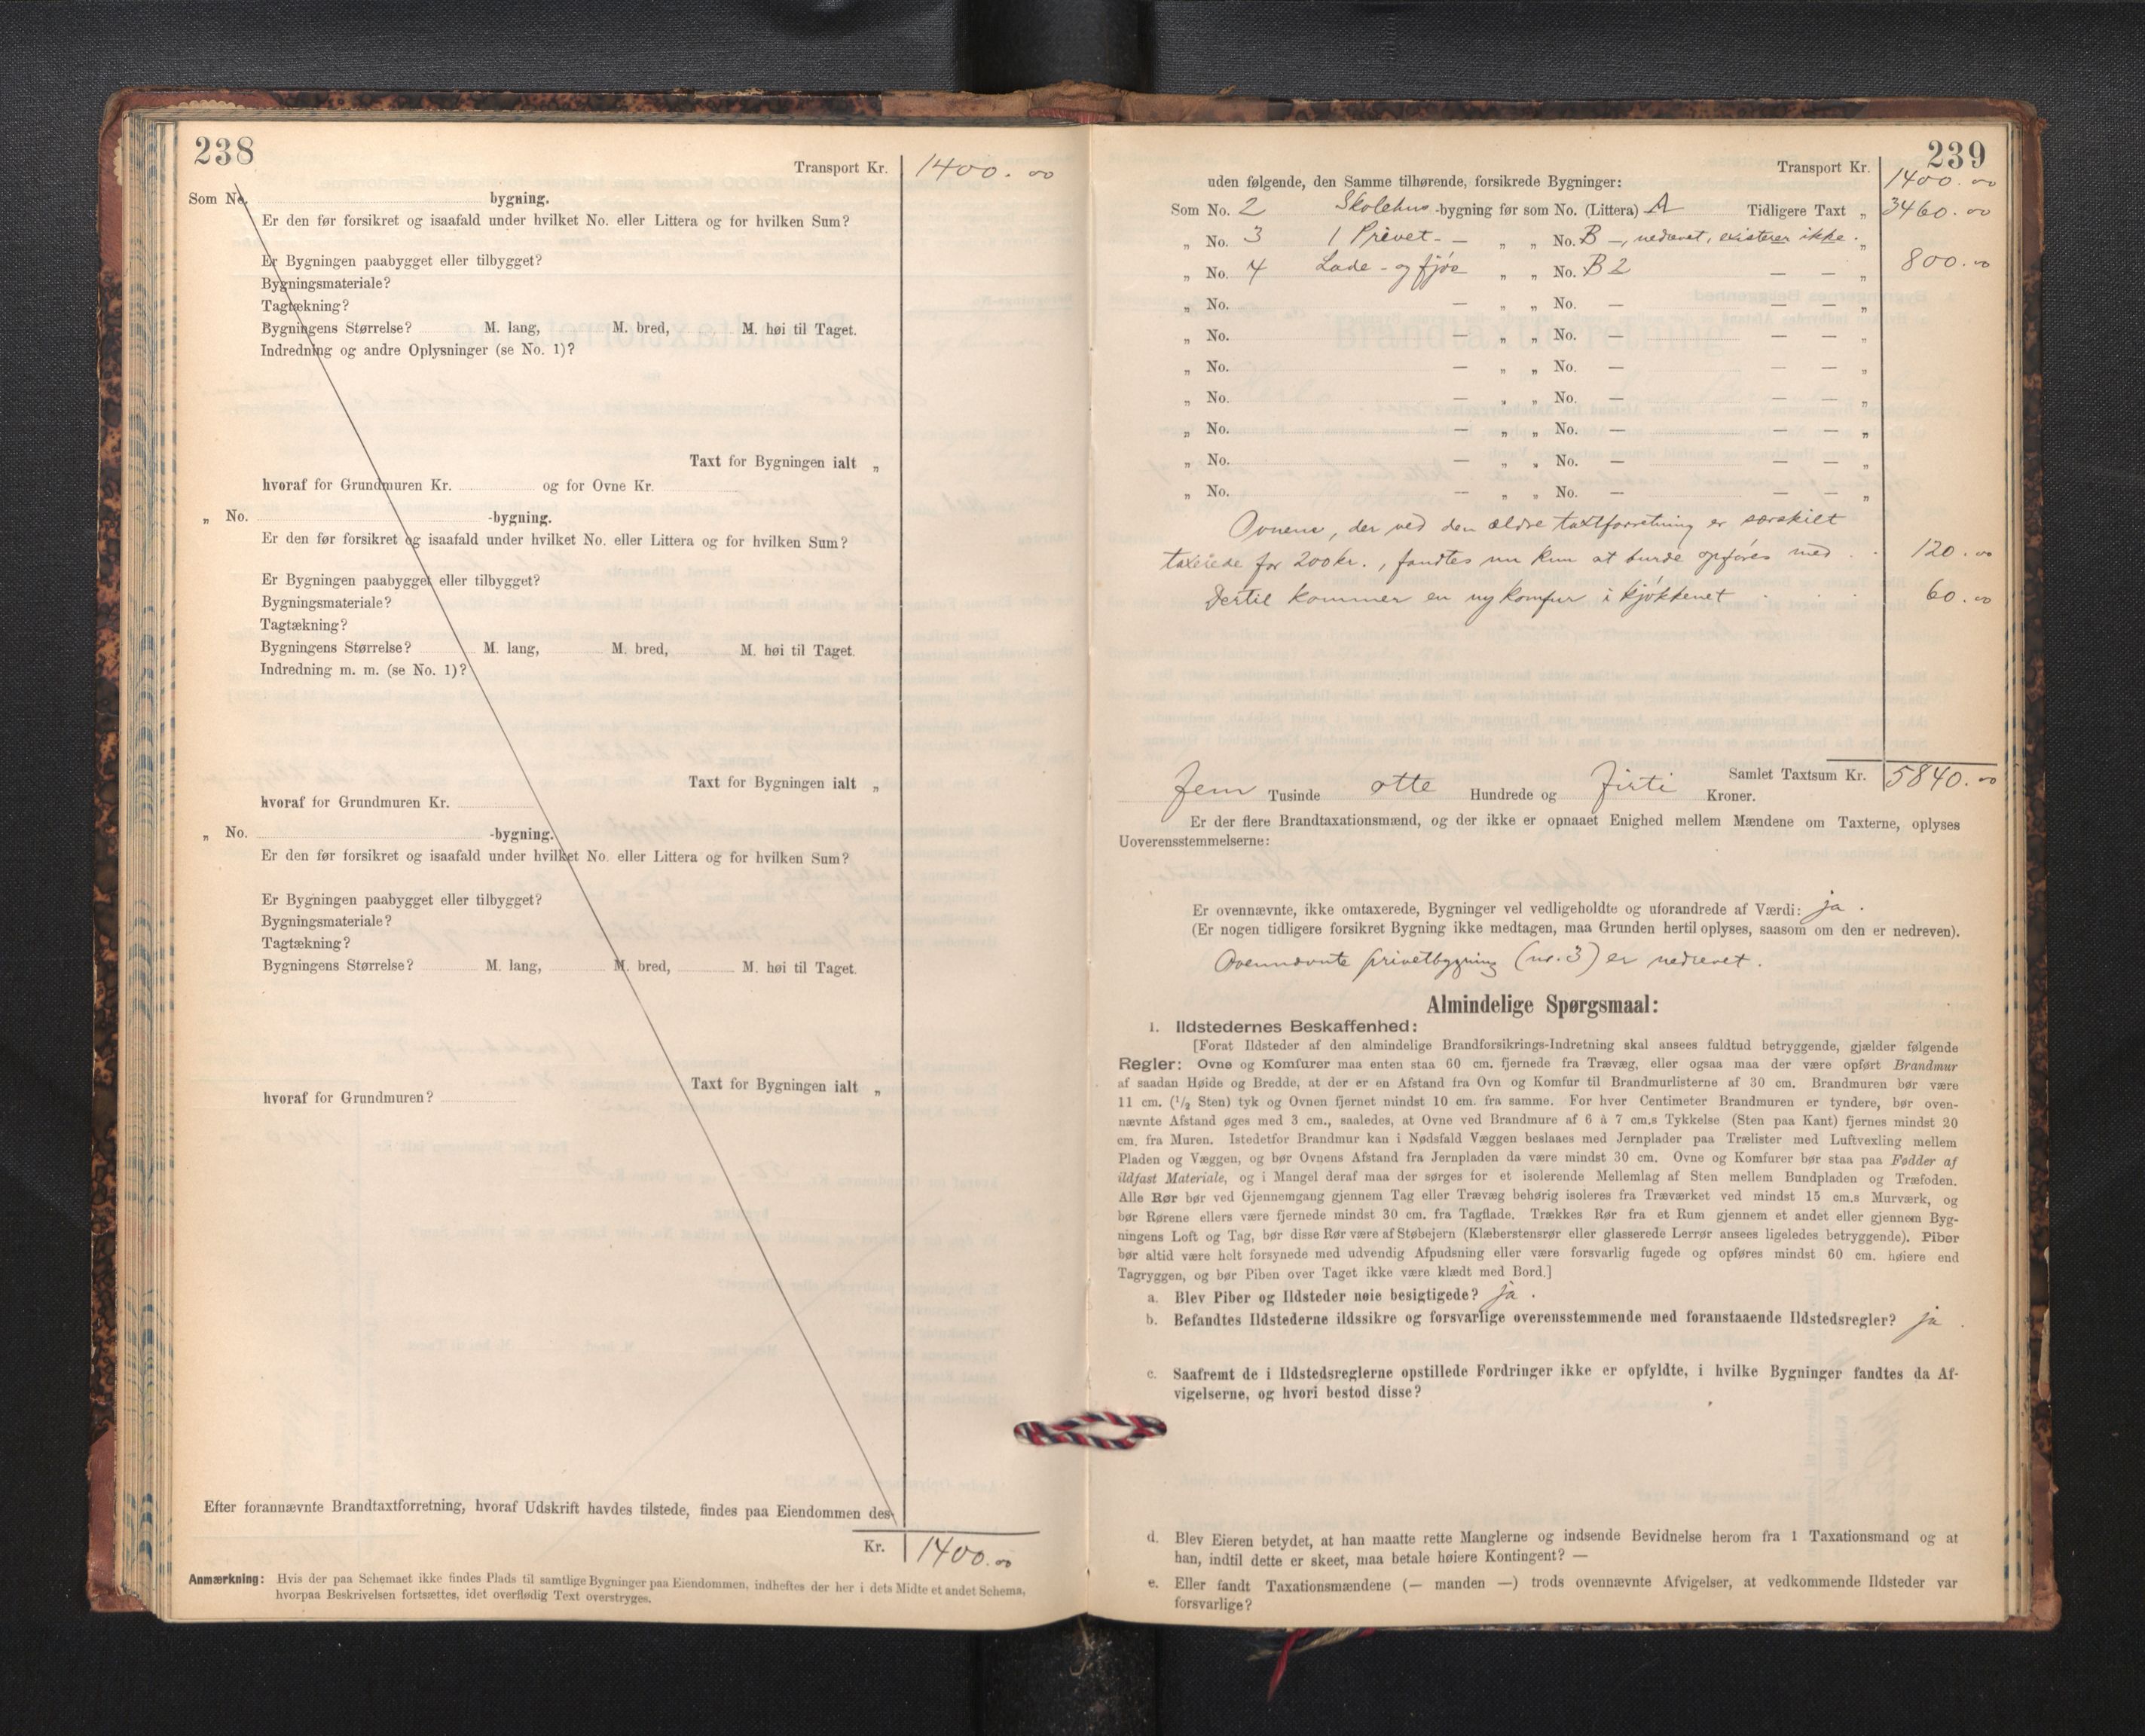 238
Transport Kr. 1400.00
Som No. bygning.
Er den før forsikret og isaafald under hvilket No. eller Littera og for hvilken Sum?
Er Bygningen paabygget eller tilbygget?
Bygningsmateriale?
Tagtækning?
Bygningens Størrelse? M. lang, M. bred, M. høi til Taget.
Indredning og andre Oplysninger (se No. 1)?
Taxt for Bygningen ialt „
hvoraf for Grundmuren Kr. og for Ovne Kr.
„ No. -bygning.
Er den før forsikret og isaafald under hvilket No. eller Littera og for hvilken Sum?
Er Bygningen paabygget eller tilbygget?
Bygningsmateriale?
Tagtækning?
Bygningens Størrelse? M. lang, M. bred, M. høi til Taget.
Indredning m. m. (se No. 1)?
Taxt for Bygningen ialt „
hvoraf for Grundmuren Kr.
„ No. -bygning.
Er den før forsikret og isaafald under hvilket No. eller Littera og for hvilken Sum?
Er Bygningen paabygget eller tilbygget?
Bygningsmateriale?
Tagtækning?
Bygningens Størrelse? M. lang, M. bred, M. høi til Taget.
Taxt for Bygningen ialt „
hvoraf for Grundmuren?
Efter forannævnte Brandtaxtforretning, hvoraf Udskrift havdes tilstede, findes paa Eiendommen des-
Kr. 1400.00
Anmærkning: Hvis der paa Schemaet ikke findes Plads til samtlige Bygninger paa Eiendommen, indheftes der her i dets Midte et andet Schema,
hvorpaa Beskrivelsen fortsættes, idet overflødig Text overstryges.
239
Transport Kr. 1400.00
uden følgende, den Samme tilhørende, forsikrede Bygninger:
Som No. 2 Skolehus -bygning før som No. (Littera) A Tidligere Taxt „ 3460.00
„ No. 3 1 Privet- — „ „ No. B —, nedrevet, existerer ikke. „
„ No. 4 Lade- og fjøs „ „ No. B 2 — — „ 800.00
„ No. — „ „ No. — — — „
„ No. — „ „ No. — — — „
„ No. — „ „ No. — — — „
„ No. — „ „ No. — — — „
„ No. — „ „ No. — — — „
„ No. — „ „ No. — — — „
„ No. — „ „ No. — — — „
Ovnene, der ved den ældre taxtforretning er særskilt
taxerede for 200 kr., fandtes nu kun at burde opføres med . . 120.00
Dertil kommer en ny komfur i kjøkkenet . . . 60.00
Samlet Taxtsum Kr. 5840.00
Fem Tusinde otte Hundrede og firti Kroner.
Er der flere Brandtaxationsmænd, og der ikke er opnaaet Enighed mellem Mændene om Taxterne, oplyses
Uoverensstemmelserne:
Er ovennævnte, ikke omtaxerede, Bygninger vel vedligeholdte og uforandrede af Værdi: ja .
(Er nogen tidligere forsikret Bygning ikke medtagen, maa Grunden hertil oplyses, saasom om den er nedreven).
Ovennævnte privetbygning (no. 3) er nedrevet.
Almindelige Spørgsmaal:
1. Ildstedernes Beskaffenhed:
[Forat Ildsteder af den almindelige Brandforsikrings-Indretning skal ansees fuldtud betryggende, gjælder følgende
Regler: Ovne og Komfurer maa enten staa 60 cm. fjernede fra Trævæg, eller ogsaa maa der være opført Brandmur
af saadan Høide og Bredde, at der er en Afstand fra Ovn og Komfur til Brandmurlisterne af 30 cm. Brandmuren bør være
11 cm. (1/2 Sten) tyk og Ovnen fjernet mindst 10 cm. fra samme. For hver Centimeter Brandmuren er tyndere, bør oven-
nævnte Afstand øges med 3 cm., saaledes, at Ovne ved Brandmure af 6 à 7 cm.s Tykkelse (Sten paa Kant) fjernes mindst 20
cm. fra Muren. Istedetfor Brandmur kan i Nødsfald Væggen beslaaes med Jernplader paa Trælister med Luftvexling mellem
Pladen og Væggen, og bør Ovnens Afstand fra Jernpladen da være mindst 30 cm. Ovne og Komfurer bør staa paa Fødder af
ildfast Materiale, og i Mangel deraf maa der sørges for et isolerende Mellemlag af Sten mellem Bundpladen og Træfoden.
Alle Rør bør ved Gjennemgang gjennem Tag eller Trævæg behørig isoleres fra Træværket ved mindst 15 cm.s Murværk, og
bør Rørene ellers være fjernede mindst 30 cm. fra Tagflade. Trækkes Rør fra et Rum gjennem et andet eller gjennem Byg-
ningens Loft og Tag, bør disse Rør være af Støbejern (Klæberstensrør eller glasserede Lerrør ansees ligeledes betryggende). Piber
bør altid være helt forsynede med udvendig Afpudsning eller være forsvarlig fugede og opføres mindst 60 cm. høiere end
Tagryggen, og bør Piben over Taget ikke være klædt med Bord.]
a. Blev Piber og Ildsteder nøie besigtigede? ja .
b. Befandtes Ildstederne ildssikre og forsvarlige overensstemmende med foranstaaende Ildstedsregler? ja .
c. Saafremt de i Ildstedsreglerne opstillede Fordringer ikke er opfyldte, i hvilke Bygninger fandtes da Af-
vigelserne, og hvori bestod disse?
d. Blev Eieren betydet, at han maatte rette Manglerne og indsende Bevidnelse herom fra 1 Taxationsmand og at
han, indtil dette er skeet, maa betale høiere Kontingent? —
e. Eller fandt Taxationsmændene (— manden —) trods ovennævnte Afvigelser, at vedkommende Ildsteder var
forsvarlige?